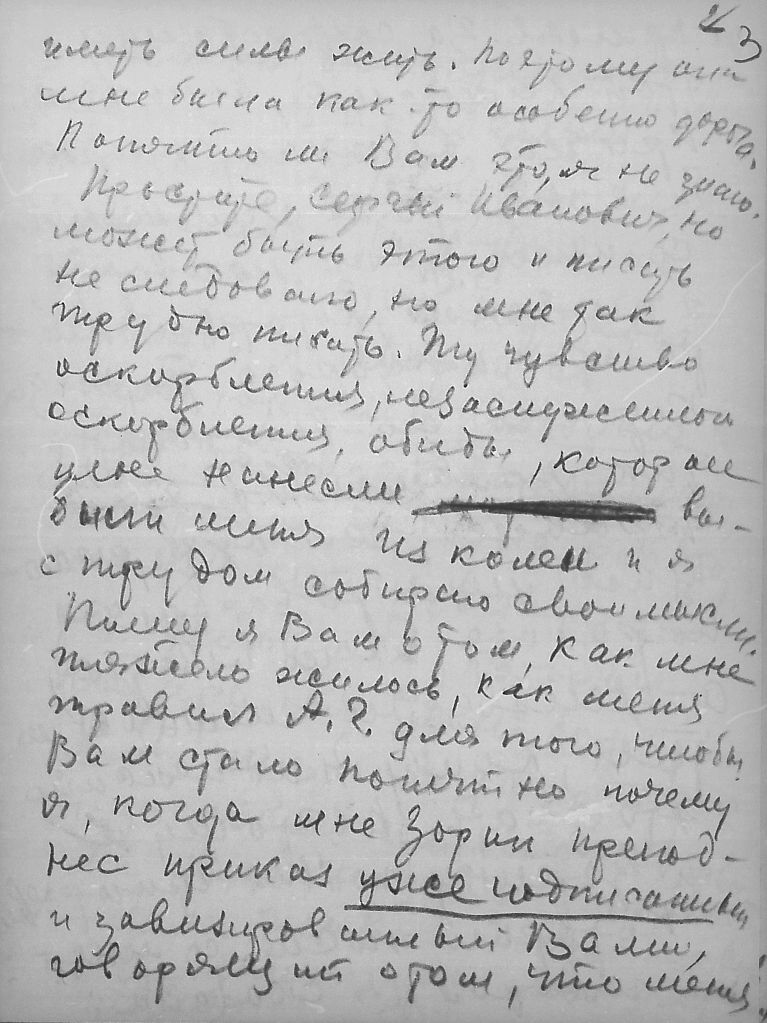 23
иметь силы жить. Поэтому она
мне была как-то особенно дорога.
Понятно ли Вам это, я не знаю.
Простите, Сергей Иванович, но
может быть этого и писать
не следовало, но мне так
трудно писать. Ту чувство
оскорбления, незаслуженного
оскорбления, обиды, которое
мне нанесли вы-
били меня из колеи и я
с трудом собираю свои мысли.
Пишу я Вам о том, как мне
тяжело жилось, как меня
травил А.Г. для того, чтобы
Вам стало понятно почему
я, когда мне Зорин препод-
нес приказ уже подписанный
и завизированный Вами,
говорящий о том, что меня